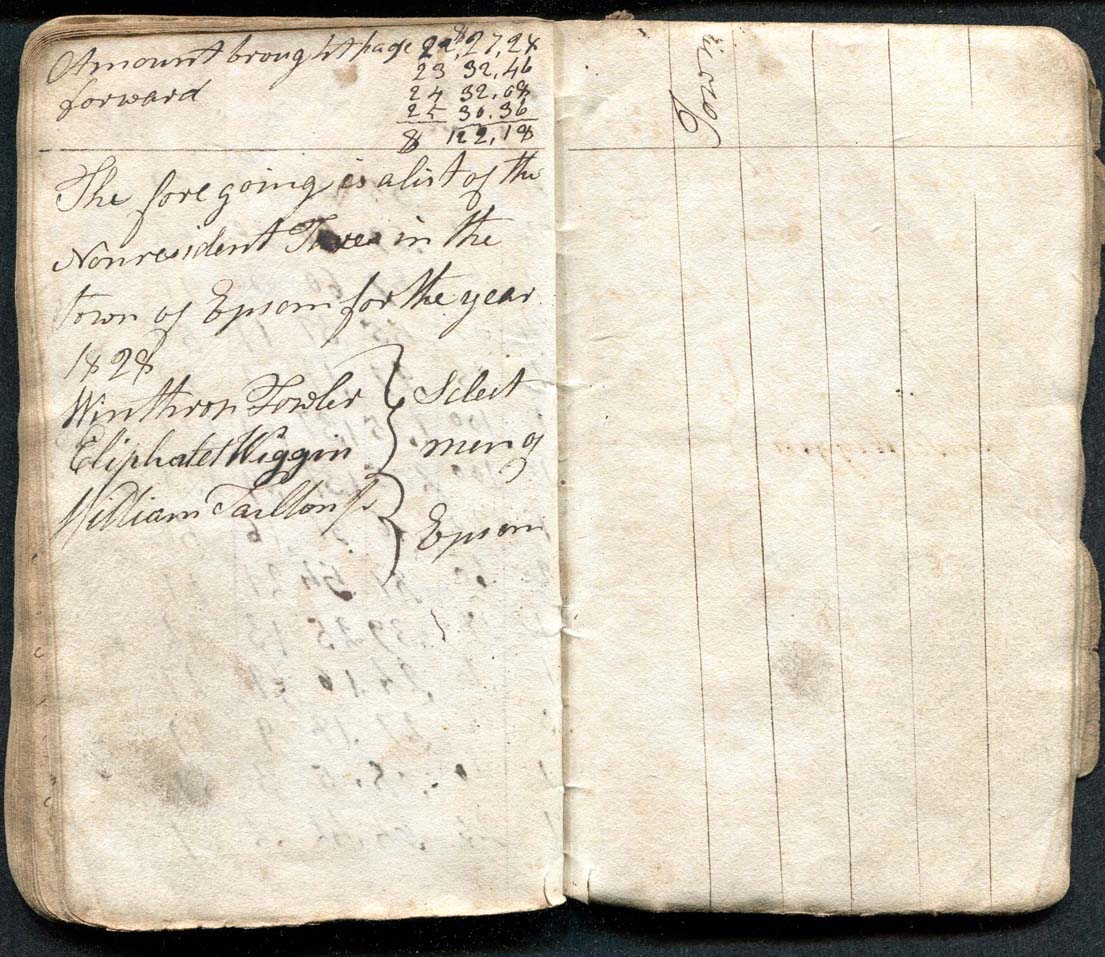 Amount brought page 22 $27,28
forward 23 32,46
24 32,08
25 30.36
$ 122,18
The fore going is a list of the
Nonresident Taxes in the
town of Epsom for the year
1828
Winthrop Fowler } Select
Eliphalet Wiggin } men of
William Tarlton Jr } Epsom
Town